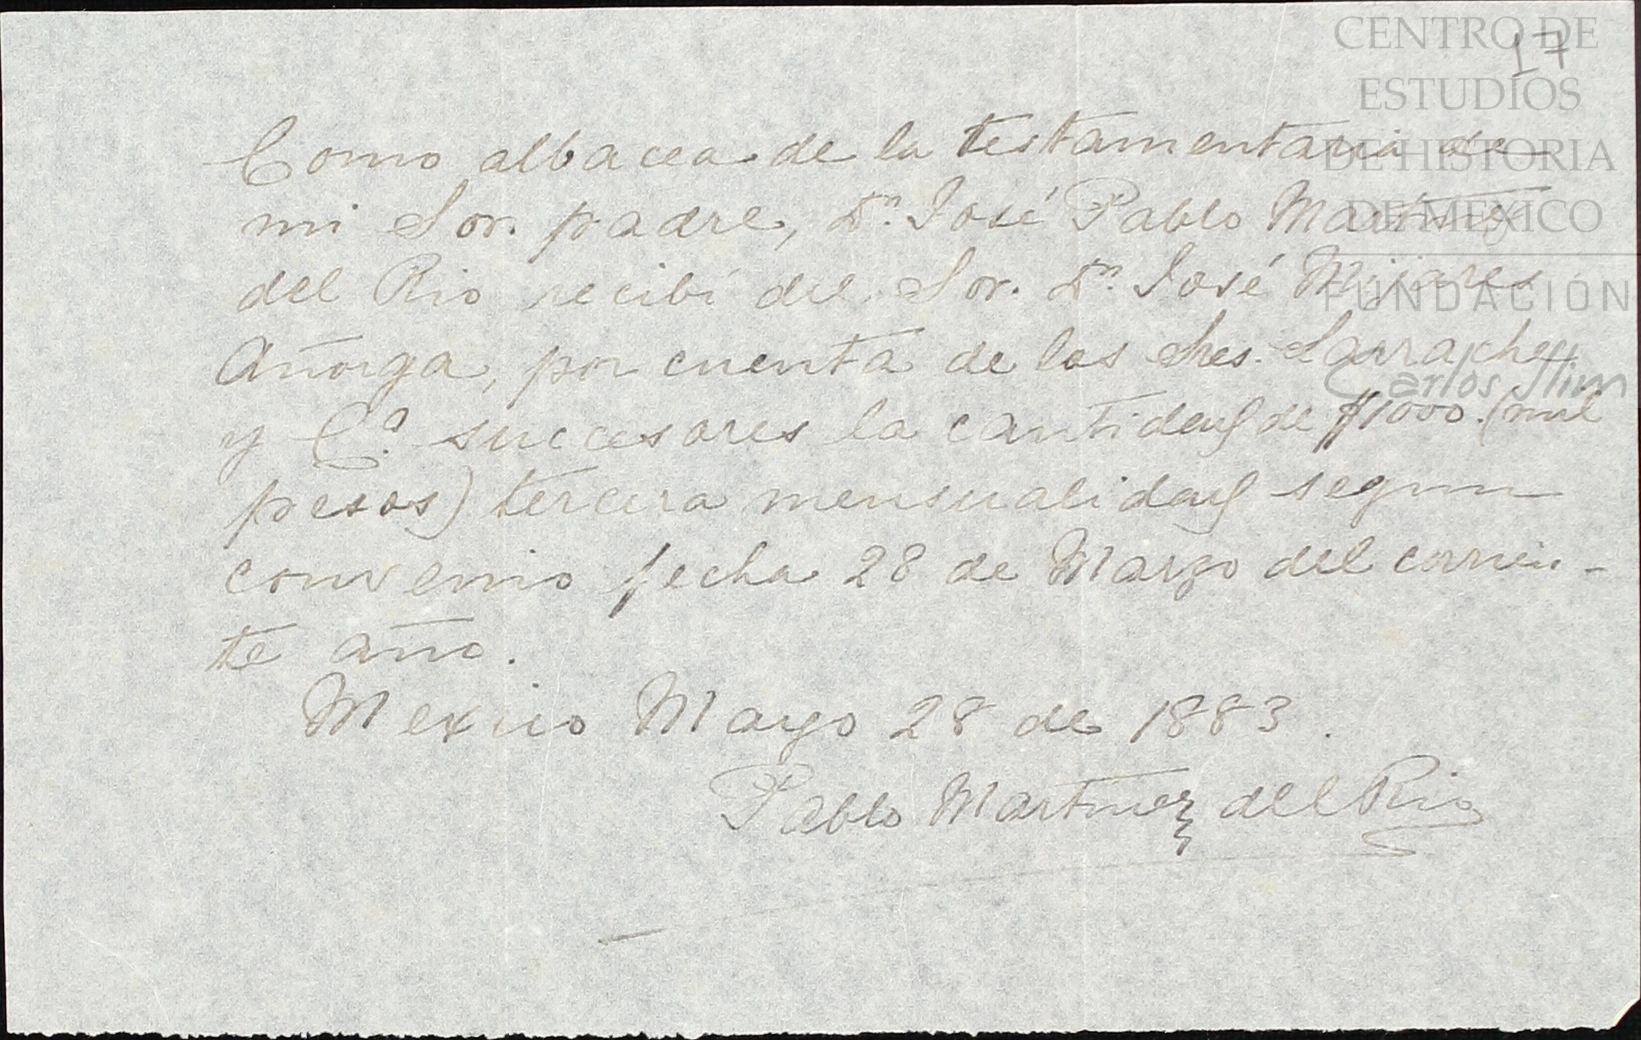 17
CENTRO DE
ESTUDIOS
DE HISTORIA
DE MEXICO
FUNDACIÓN
Carlos Slim
Como albacea de la testamentaria de
mi Sor. padre, Dn. José Pablo Martinez
del Rio recibí del Sor. Dn. José Mijares
Añorga, por cuenta de los Sres.
y Ca. succesores la cantidad de $1000. (mil
pesos) tercera mensualidad segun
convenio fecha 28 de Marzo del corrien-
te año.
Mexico Mayo 28 de 1883.
Pablo Martinez del Rio